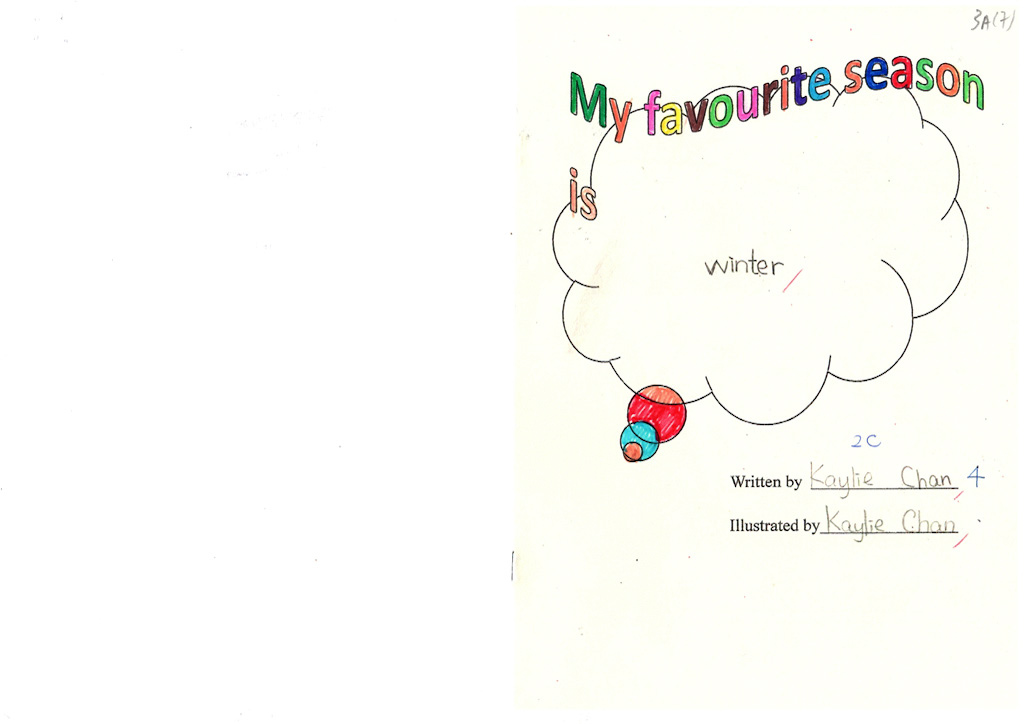 3A(7)
My favourite season
is
winter
2C
Written by Kaylie Chan 4
Illustrated by Kaylie Chan